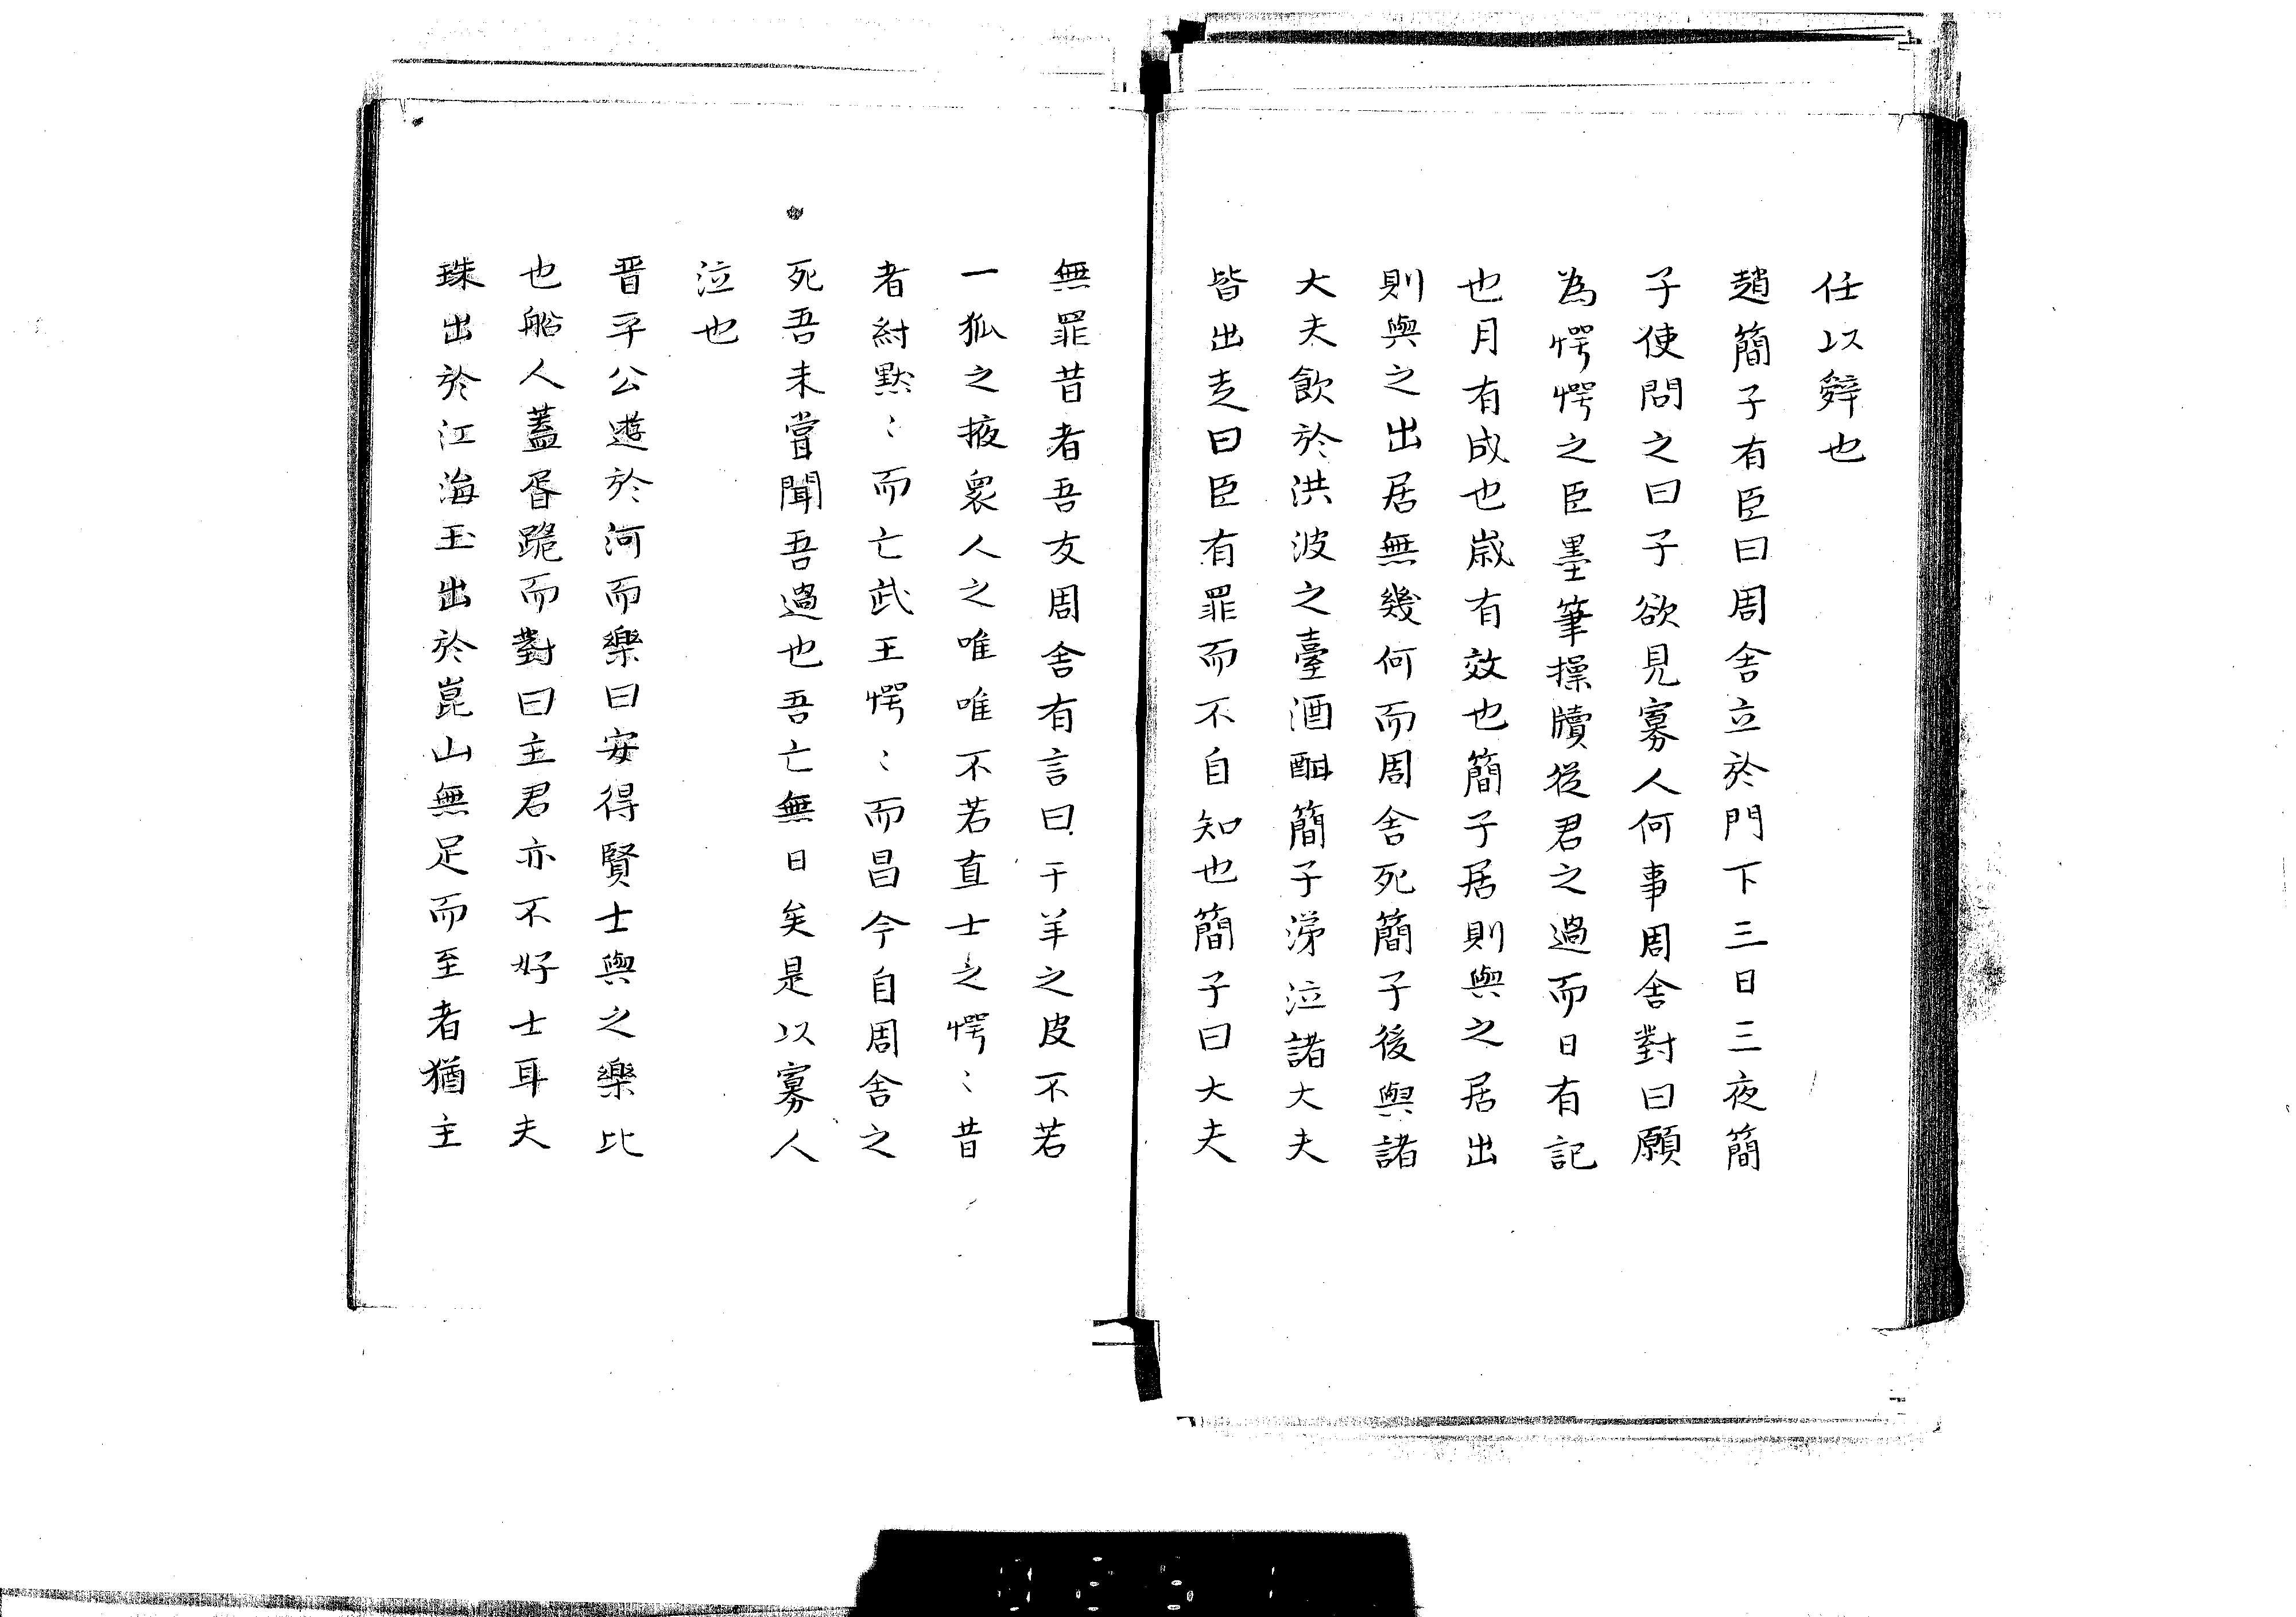 任以辤也
趙簡子有臣曰周舍立於門下三日三夜簡
子使問之曰子欲見寡人何事周舍對曰願
為愕愕之臣墨筆操牘從君之過而日有記
也月有成也歳有效也簡子居則與之居出
則與之出居無幾何而周舍死簡子後與諸
大夫飲於洪波之臺酒酣簡子涕泣諸大夫
皆出走曰臣有罪而不自知也簡子曰大夫
無罪昔者吾友周舍有言曰千羊之皮不若
一狐之掖衆人之唯唯不若直士之愕〻昔
者紂黙〻而亡武王愕〻而昌今自周舍之
死吾未嘗聞吾過也吾亡無日矣是以寡人
泣也
晉平公遊於河而樂曰安得賢士與之樂比
也船人蓋胥跪而對曰主君亦不好士耳夫
珠出於江海玉出於崑山無足而至者猶主